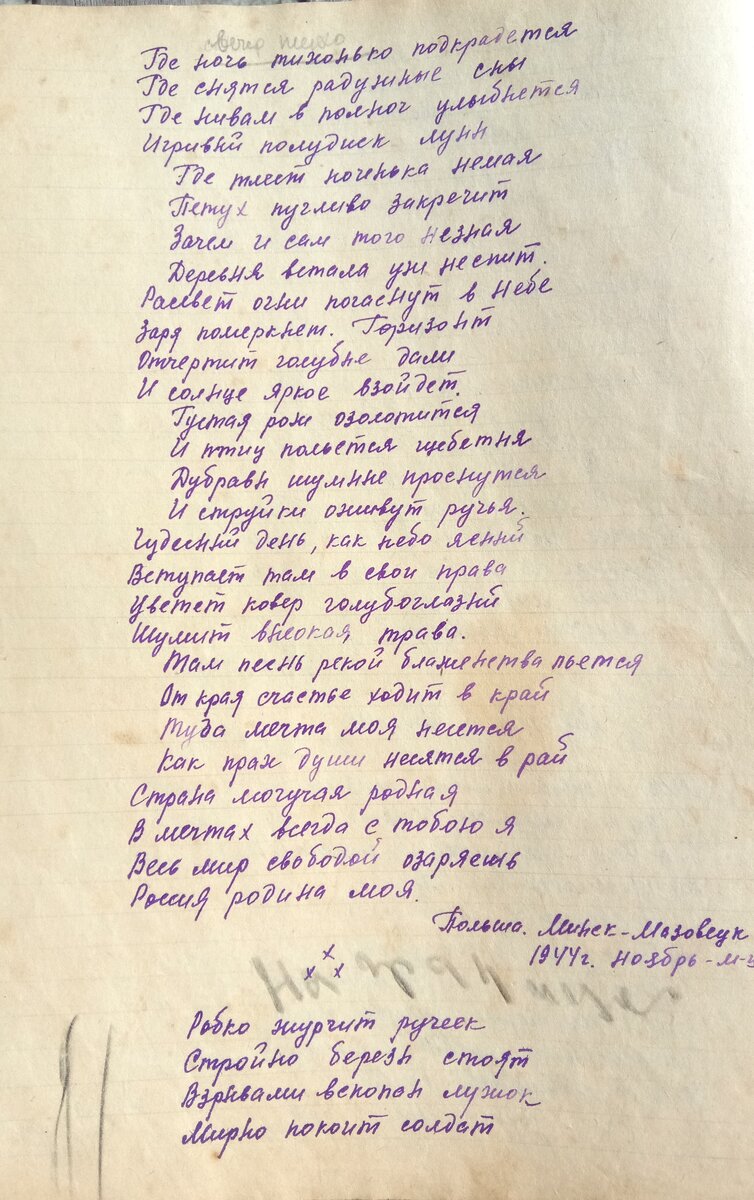 вечер тихо
Где ночь тихонько подкрадется
Где снятся радужные сны
Где нивам в полноч улыбнется
Игривый полудиск луны
Где тлеет ноченька немая
Петух пугливо закречит
Зачем и сам того незная
Деревня встала уж неспит.
Рассвет огни погаснут в небе
Заря померкнет. Горизонт
Отчертит голубые дали
И солнце яркое взойдет.
Густая рож озолотится
И птиц польется щебетня
Дубравы шумные проснутся
И струйки оживут ручья.
Чудесный день, как небо ясный
Вступает там в свои права
Цветет ковер голубоглазый
Шумит высокая трава.
Там песнь рекой блаженства льется
От края счастье ходит в край
Туда мечта моя несется
Как прах души несятся в рай
Страна могучая родная
В мечтах всегда с тобою я
Весь мир свободой озаряешь
Россия родина моя.
Польша. Минск-Мазовецк
1944г. Ноябрь-м-ц
х х х
Робко журчит ручеек
Стройно березы стоят
Взрывами вскопан лужок
Мирно покоит солдат